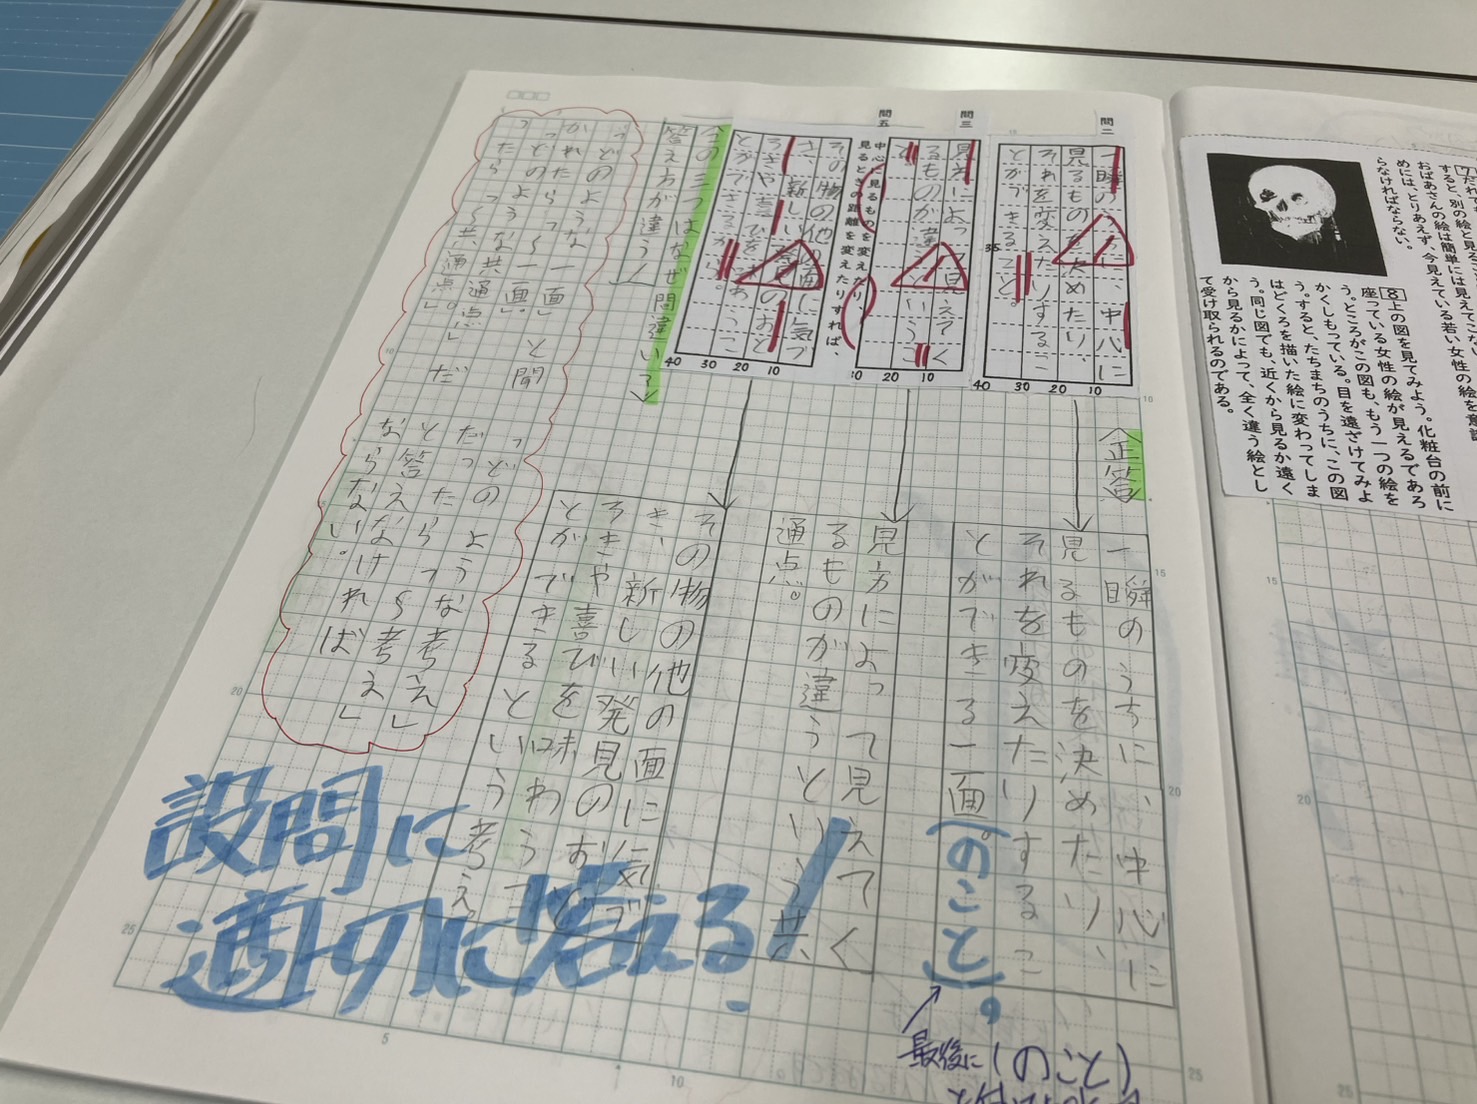 7
すると、別の絵と見る
おばあさんの絵は簡単には見えてこない
めには、とりあえず、今見えている若い女性の絵を意識
らなければならない。
8上の図を見てみよう。化粧台の前に
座っている女性の絵が見えるであろ
う。ところがこの図も、もう一つの絵を
かくしもっている。目を遠ざけてみよ
う。すると、たちまちのうちに、この図
はどくろを描いた絵に変わってしま
う。同じ図でも、近くから見るか遠く
から見るかによって、全く違う絵とし
て受け取られるのである。
問二
一瞬のうちに、中心に
見るものを決めたり、
それを変えたりするこ
とができること。
10
20
30
40
35
問三
見方によって見えてく
るものが違うというこ
と。
10
20
問五
中心に見るものを変えたり、
見るときの距離を変えたりすれば、
その物の他の面に気づ
き、新しい発見のおど
ろきや喜びを味わうこ
とができるから。
10
20
30
40
今の三つはなぜ間違い?
答え方が違う!
〈正答〉
一瞬のうちに、中心に
見るものを決めたり、
それを変えたりするこ
とができる一面。
(のこと)。
最後に(のこと)
見方によって見えてく
るものが違うという共
通点。
その物の他の面に気づ
き、新しい発見のおど
ろきや喜びを味わうこ
とができるという考え。
「どのような〜一面」と聞
かれたら〜一面。
「どのような〜共通点」だ
ったら〜共通点。」
「どのような〜考え」
だったら〜考え」
と答えなければ
ならない。
設問に
適切に答える!
15
20
25
5
10
15
20
25